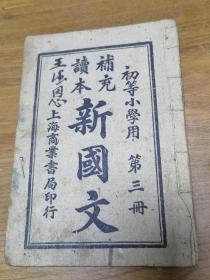 初等小學用 第三冊
補充讀本
新國文
上海商業書局印行